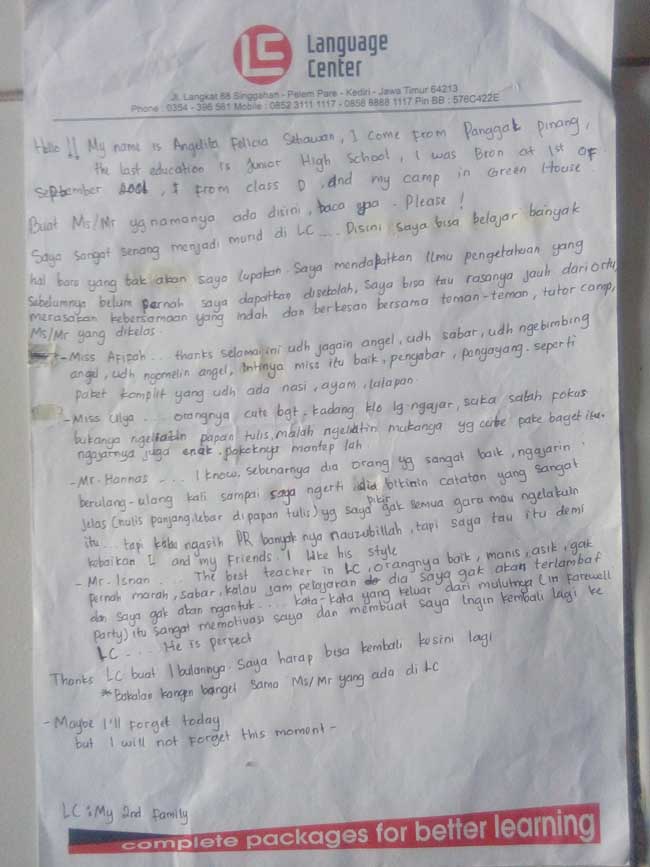 LC Language
Center
Jl. Langkat 88 Singgahan - Pelem Pare - Kediri - Jawa Timur 64213
Phone : 0354 - 396 581 Mobile : 0852 3111 1117 - 0856 8888 1117 Pin BB : 576C422E
Hello !! My name is Angelita Felicia Setiawan, I come from Panggak Pinang,
the last education is Junior High School, I was Bron at 1st of
September 2001, I from class D, and my camp in Green House.
Buat Ms/Mr yg namanya ada disini, baca ya. Please !
Saya sangat senang menjadi murid di LC .... Disini saya bisa belajar banyak
hal baru yang tak akan saya lupakan. Saya mendapatkan Ilmu pengetahuan yang
sebelumnya belum pernah saya dapatkan disekolah, saya bisa tau rasanya jauh dari ortu,
merasakan kebersamaan yang indah dan berkesan bersama teman-teman, tutor camp,
Ms/Mr yang dikelas.
- Miss Afizah ... thanks selama ini udh jagain angel, udh sabar, udh ngebimbing
angel, udh ngomelin angel, Intinya miss itu baik, penyabar, penyayang. seperti
paket komplit yang udh ada nasi, ayam, lalapan.
- Miss Ulya .... orangnya cute bgt. kadang klo lg ngajar, suka salah fokus
bukanya ngeliatin papan tulis, malah ngeliatin mukanya yg cute pake baget itu.
ngajarnya juga enak. pokoknya mantep lah
- Mr. Hannas ... I know, sebenarnya dia orang yg sangat baik, ngajarin
berulang-ulang kali sampai saya ngerti dia bikinin catatan yang sangat
jelas (nulis panjang lebar di papan tulis) yg saya pikir gak semua gara mau ngelakuin
itu ... tapi kalau ngasih PR banyak nya nauzubillah, tapi saya tau itu demi
kebaikan I and my friends. I like his style
- Mr. Isnan .... The best teacher in LC, orangnya baik, manis, asik, gak
pernah marah, sabar, kalau jam pelajaran dia saya gak akan terlambat
dan saya gak akan ngantuk .... kata-kata yang keluar dari mulutnya (in farewell
party) itu sangat memotivasi saya dan membuat saya ingin kembali lagi ke
LC .... He is perfect
Thanks LC buat 1 bulannya. Saya harap bisa kembali kesini lagi
* Bakalan kangen banget sama Ms/Mr yang ada di LC
- Maybe I'll forget today
but I will not forget this moment -
LC : My 2nd family
complete packages for better learning